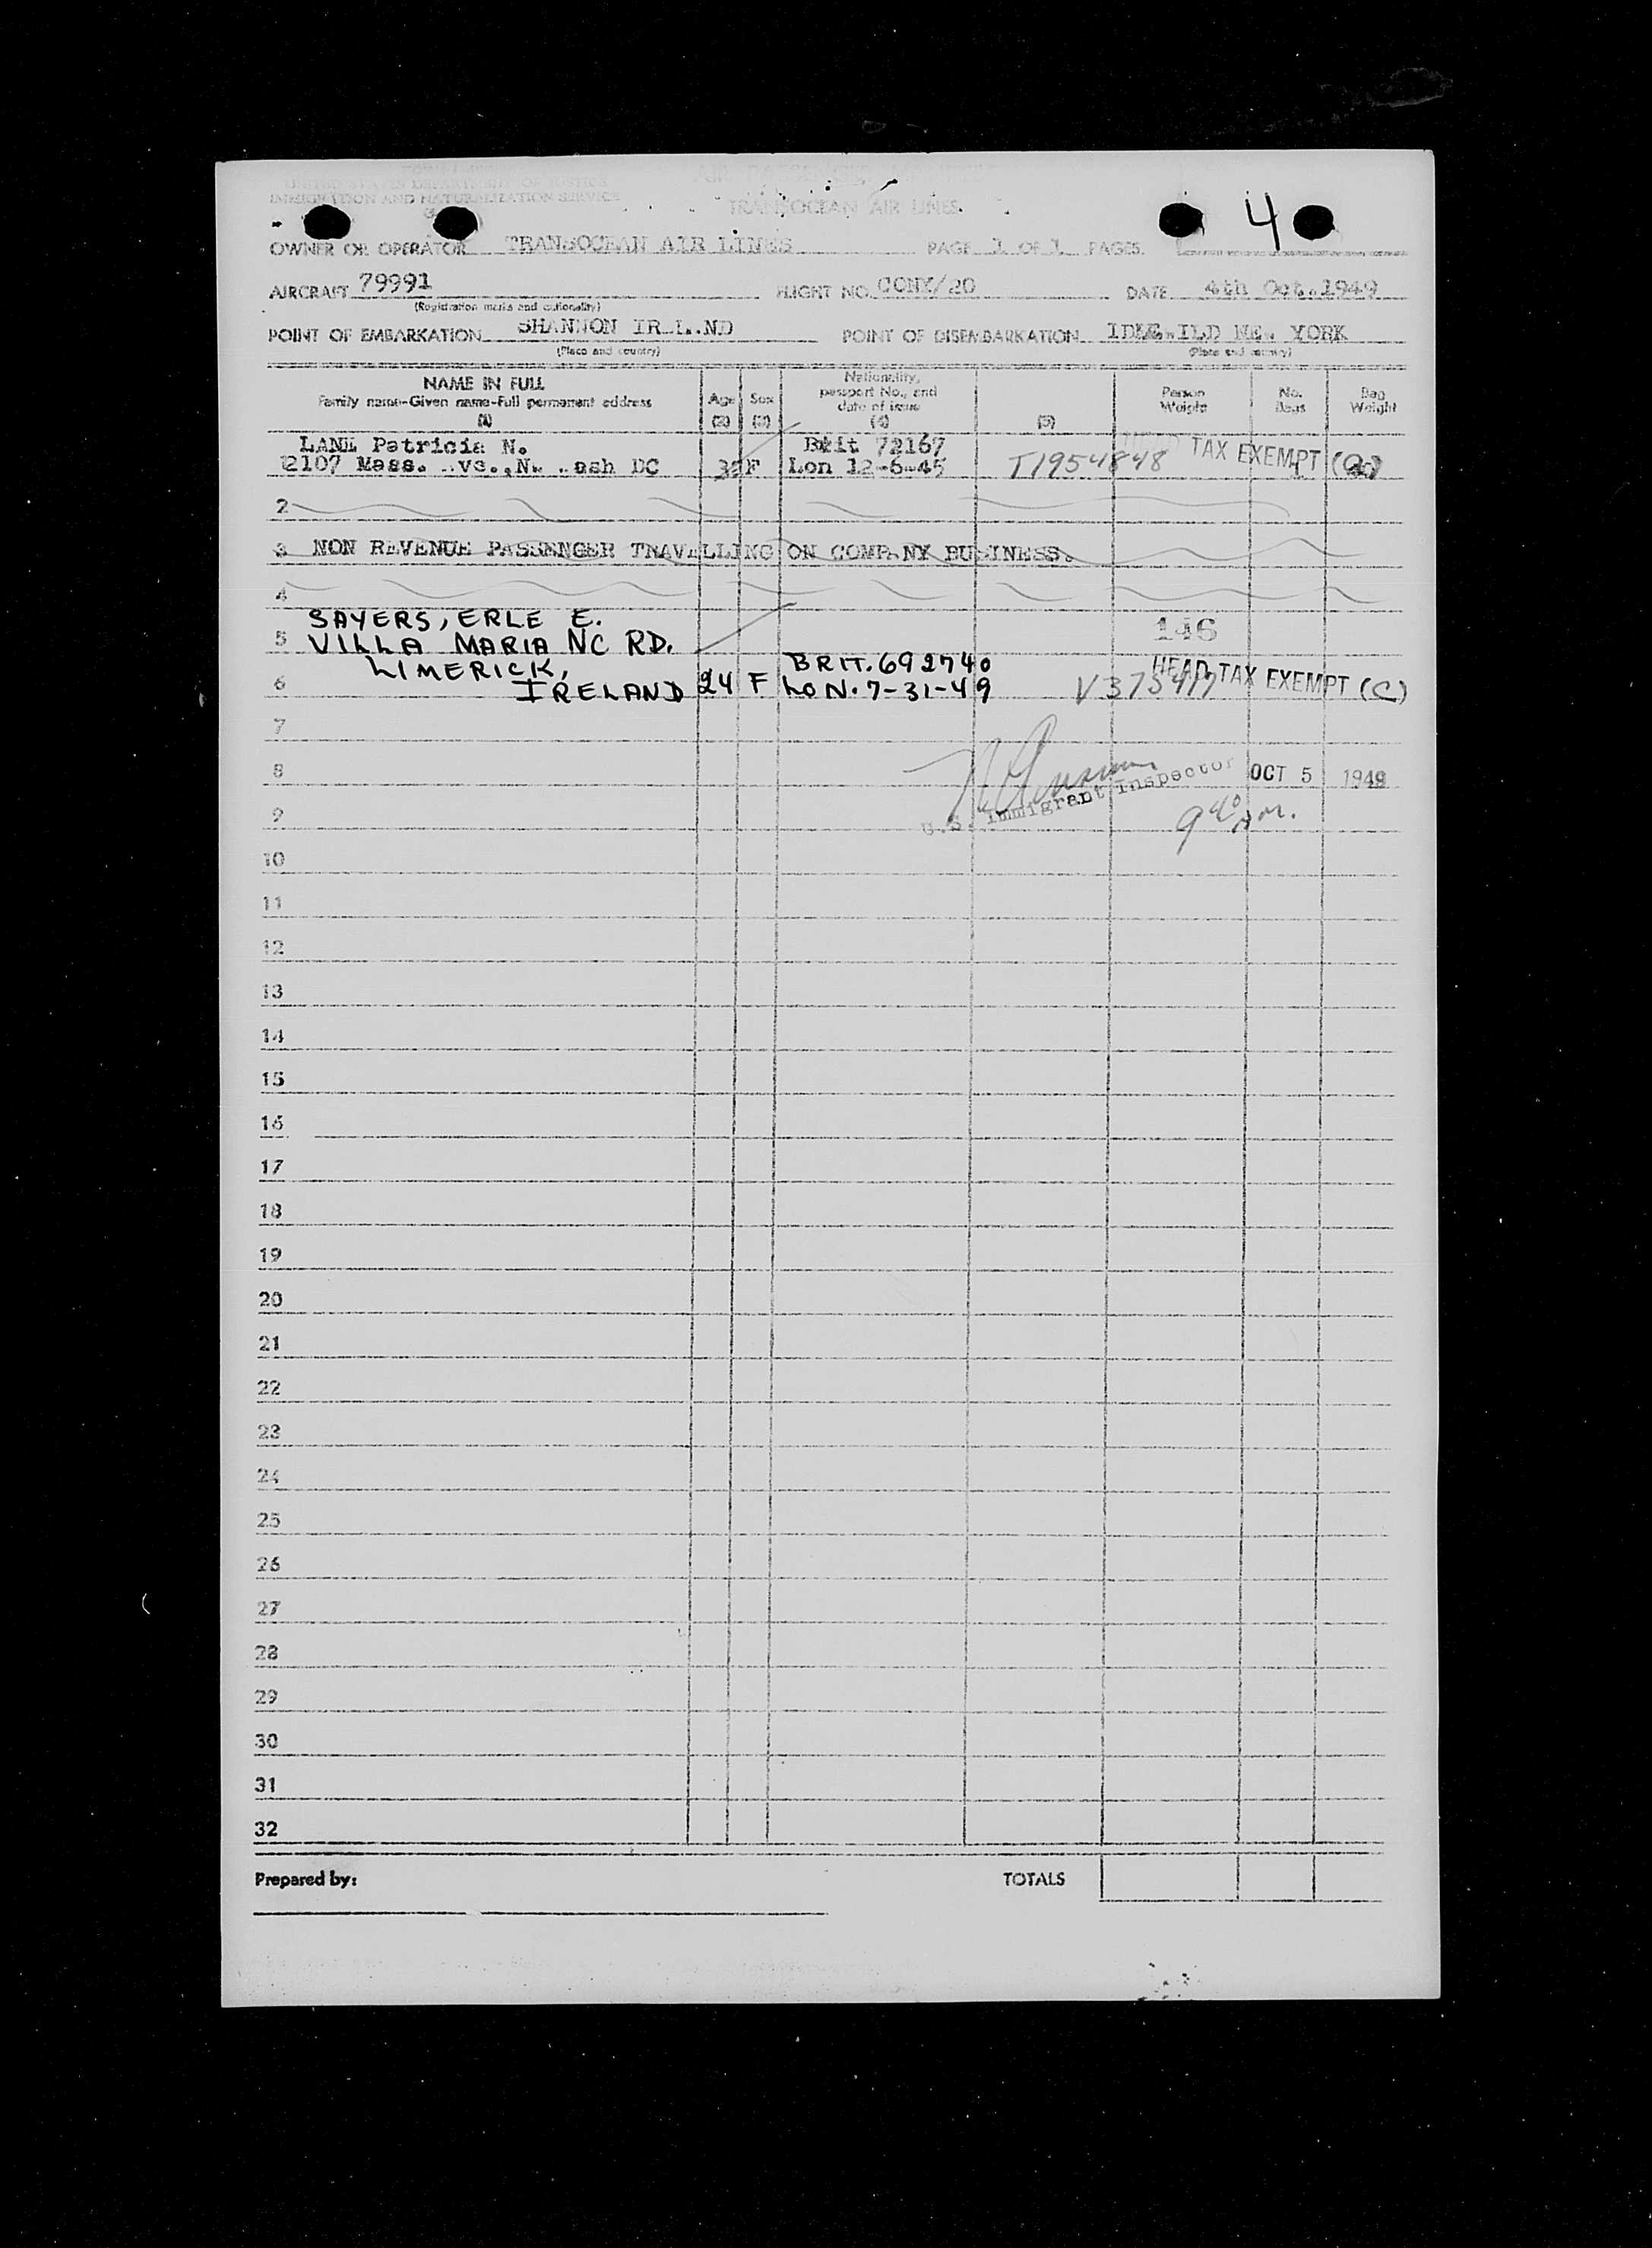 UNITED STATES DEPARTMENT OF JUSTICE
IMMIGRATION AND NATURALIZATION SERVICE
TRANSOCEAN AIR LINES
4
OWNER OR OPERATOR TRANSOCEAN AIR LINES PAGE 1 OF 1 PAGES
AIRCRAFT 79991 FLIGHT NO. CONY/20 DATE 4th Oct. 1949
(Registration marks and nationality)
POINT OF EMBARKATION SHANNON IR L ND POINT OF DISEMBARKATION IDLEWILD NEW YORK
(Place and country) (Place and country)
NAME IN FULL
Family name-Given name-Full permanent address
(1)
Age
(2)
Sex
(3)
Nationality,
passport No., and
date of issue
(4)
(5)
Person
Weight
No.
Bags
Bag
Weight
LANE Patricia N. Brit 72167 HEAD TAX EXEMPT
2107 Mass. ve.,N. ash DC F Lon 12-6-45 T1954848
2
3 NON REVENUE PASSENGER TRAVELLING ON COMPANY BUSINESS.
4
SAYERS, ERLE E.
5 VILLA MARIA NC RD. 146
LIMERICK, BRIT. 692740 HEAD TAX EXEMPT (C)
6 IRELAND 24 F LON. 7-31-49 V375417
7
8 U.S. Immigrant Inspector OCT 5 1949
9 9 40 AM.
10
11
12
13
14
15
16
17
18
19
20
21
22
23
24
25
26
27
28
29
30
31
32
Prepared by: TOTALS